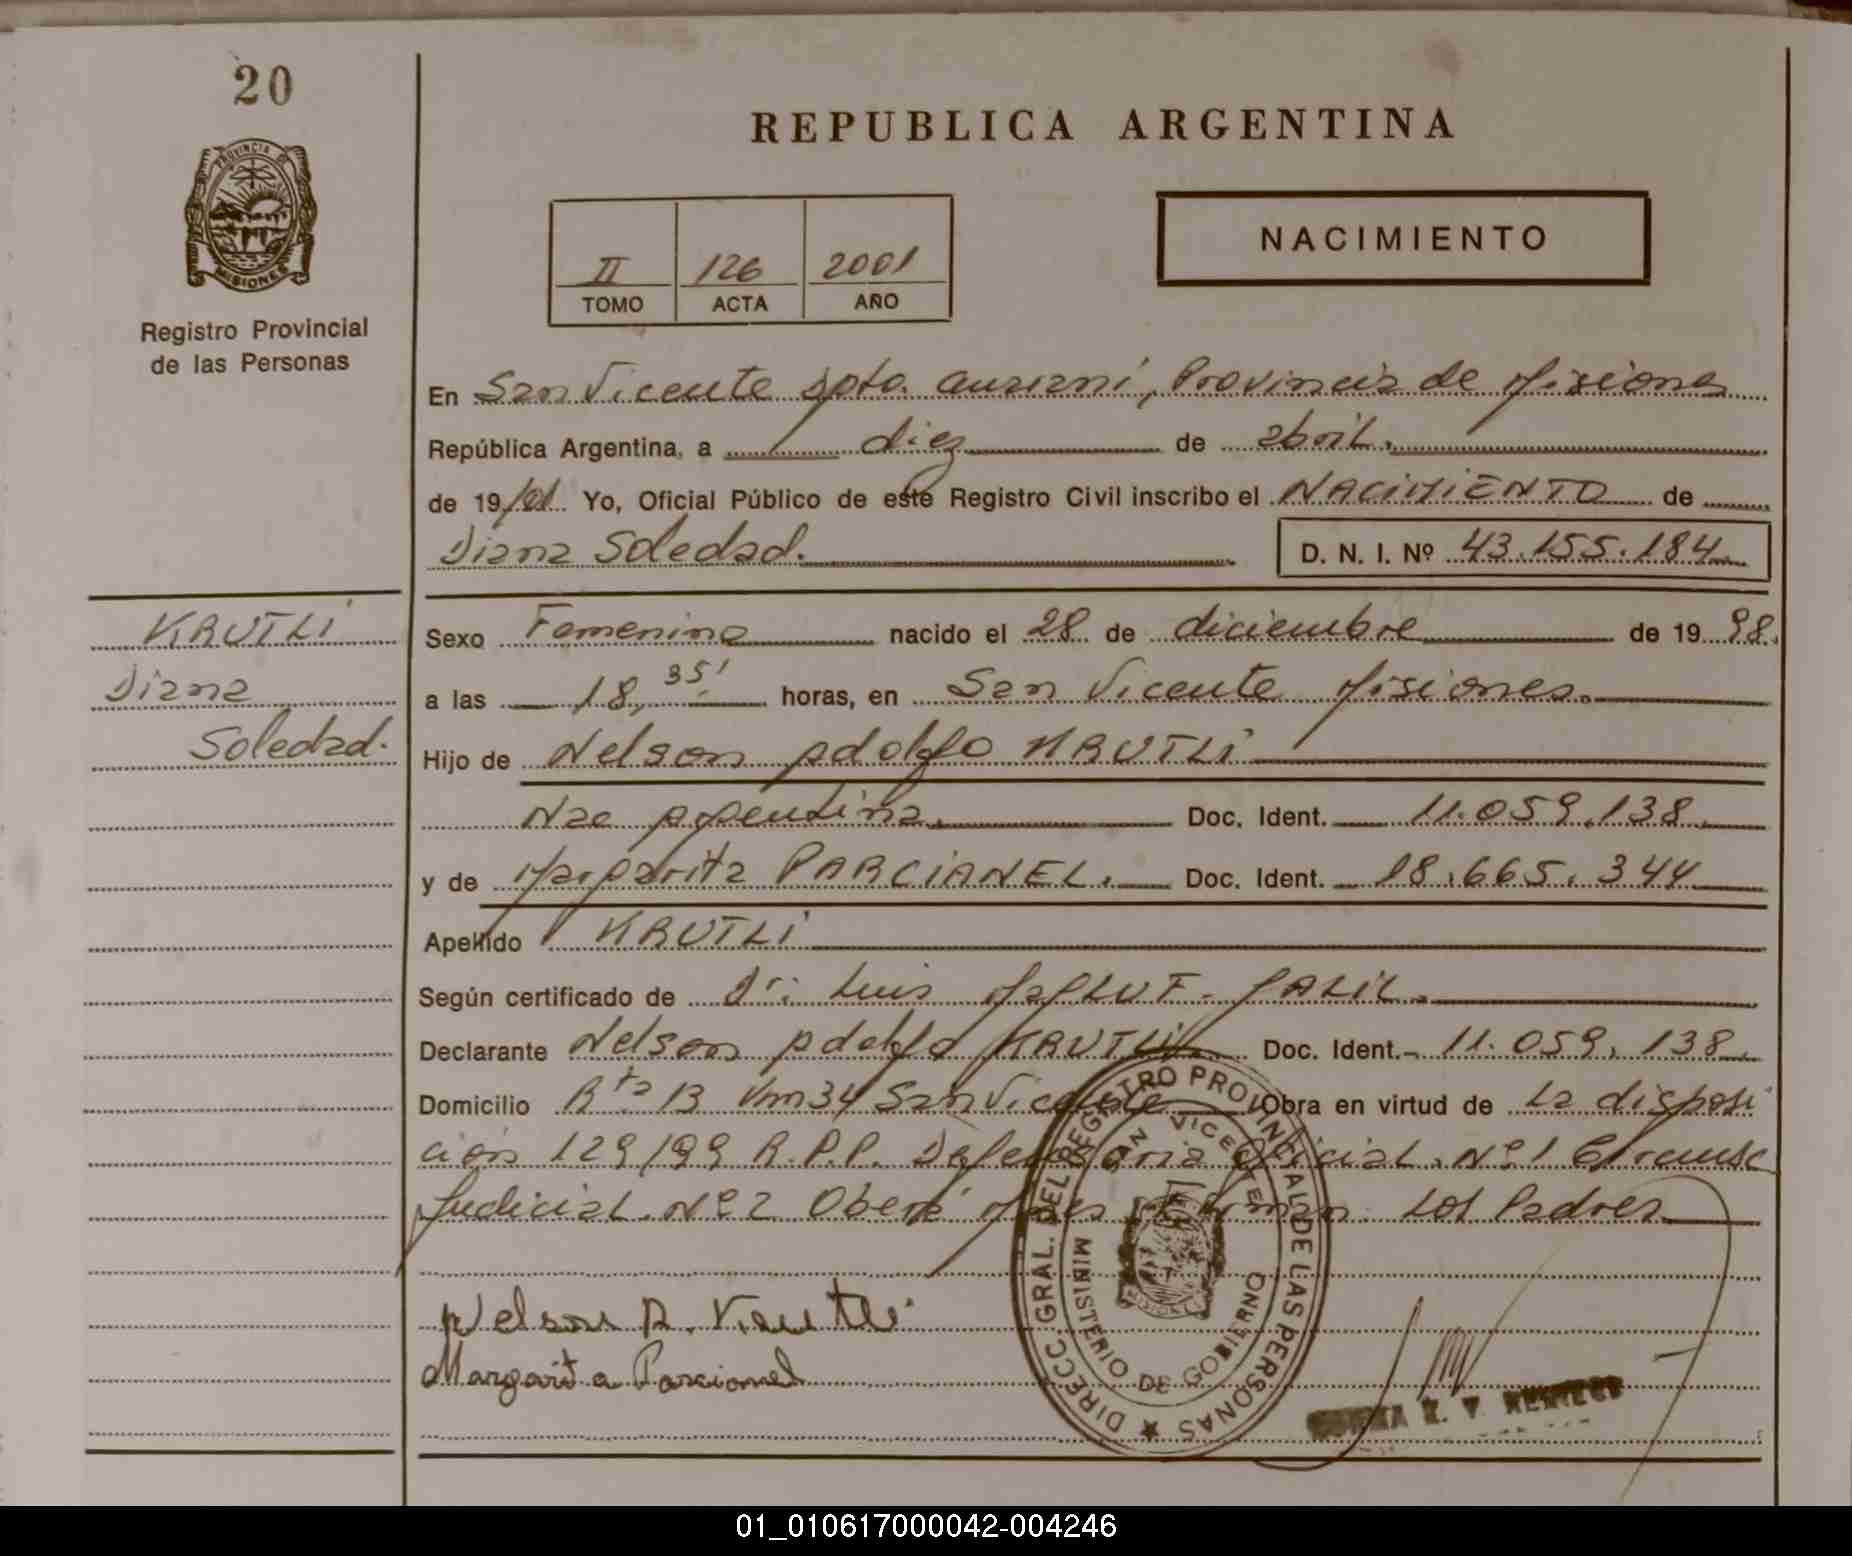 20
PROVINCIA DE
MISIONES
Registro Provincial
de las Personas
REPUBLICA ARGENTINA
II 126 2001
TOMO ACTA AÑO
NACIMIENTO
En San Vicente Dpto. Guaraní, Provincia de Misiones
República Argentina, a diez de abril.
de 19/01 Yo, Oficial Público de este Registro Civil inscribo el NACIMIENTO de
Diana Soledad. D. N. I. Nº 43.155.184
KRUTLI
Diana
Soledad.
Sexo Femenino nacido el 28 de diciembre de 19 98.
a las 18,35' horas, en San Vicente Misiones.
Hijo de Nelson Adolfo KRUTLI
Nac Argentina. Doc. Ident. 11.059.138
y de Margarita PARCIANEL. Doc. Ident. 18.665.344
Apellido KRUTLI
Según certificado de Dr: Luis JALIL.
Declarante Nelson Adolfo KRUTLI Doc. Ident. 11.059.138.
Domicilio Rta 13 Km 34 San Vicente Obra en virtud de la disposi
ción 129/99 R.P.P. Defensoria Oficial Nº 1 Circunsc
Judicial Nº 2 Oberá Mnes Firman Los Padres
Nelson A. Krutli
Margarita Parcianel
DIRECC GRAL. DEL REGISTRO PROVINCIAL DE LAS PERSONAS
SAN VICENTE
MINISTERIO DE GOBIERNO
MISIONES
01_010617000042-004246